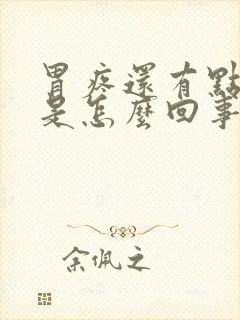 胃疼還有點
是怎麼回事
余佩之